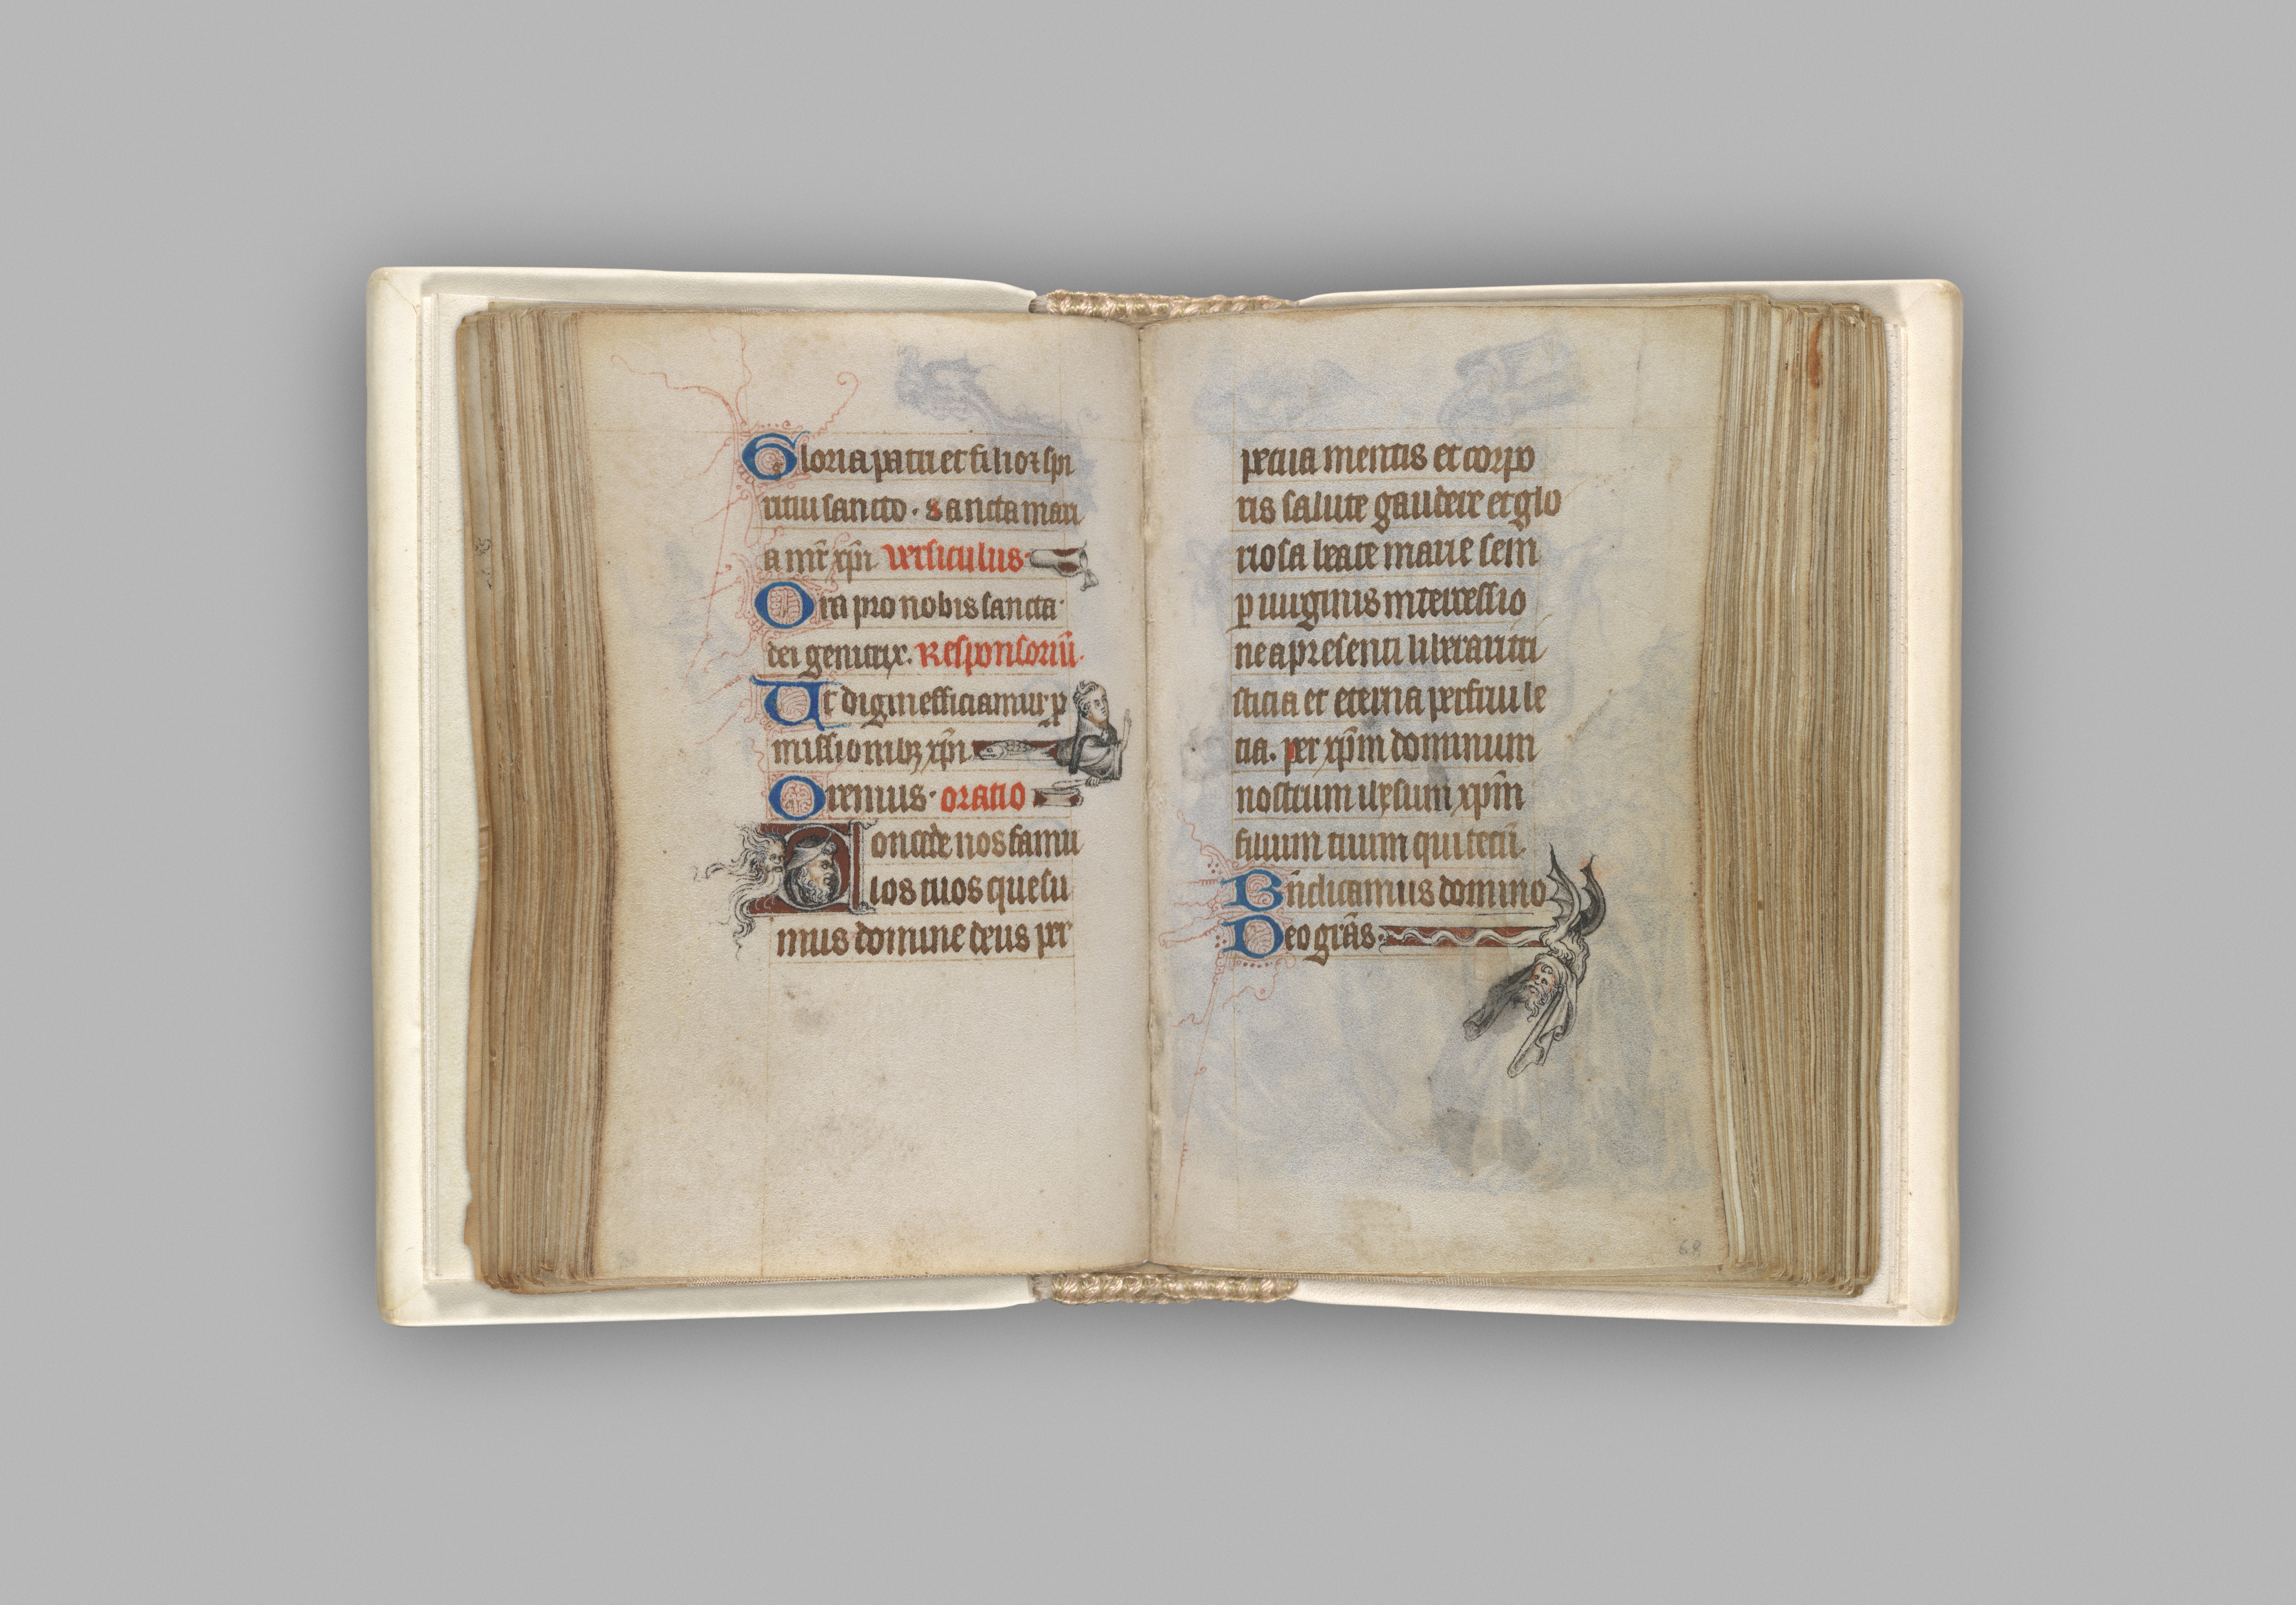 Gloria patri et filio ⁊ spi
ritui sancto. Sancta mari
a mr̄ xp̄i versiculus.
Ora pro nobis sancta
dei genitrix. Responsoriū.
Ut digni efficiamur ꝓ
missionibꝫ xp̄i
Oremus. oratio
Concede nos famu
los tuos quesu
mus domine deus per
petua mentis et corpo
ris salute gaudere et glo
riosa beate marie sem
ꝑ uirginis intercessio
ne a presenti liberari tri
sticia et eterna perfrui le
ticia. per xp̄m dominum
nostrum ihesum xp̄m
filium tuum qui tecū.
Bn̄dicamus domino
Deo grās.
68